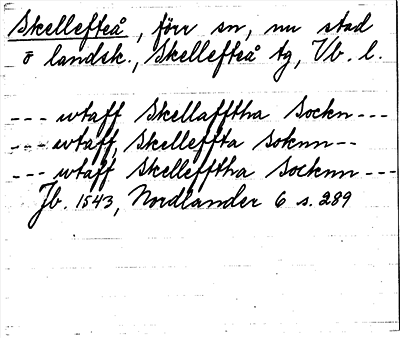 Skellefteå, förr sn, nu stad
o landsk., Skellefteå tg, Vb. l.
--- wtaff Skellafftha Sockn ---
--- wtaff Skelleffta Soknn --
--- wtaff Skellefftha Socknn ---
Jb. 1543, Nordlander 6 s. 289